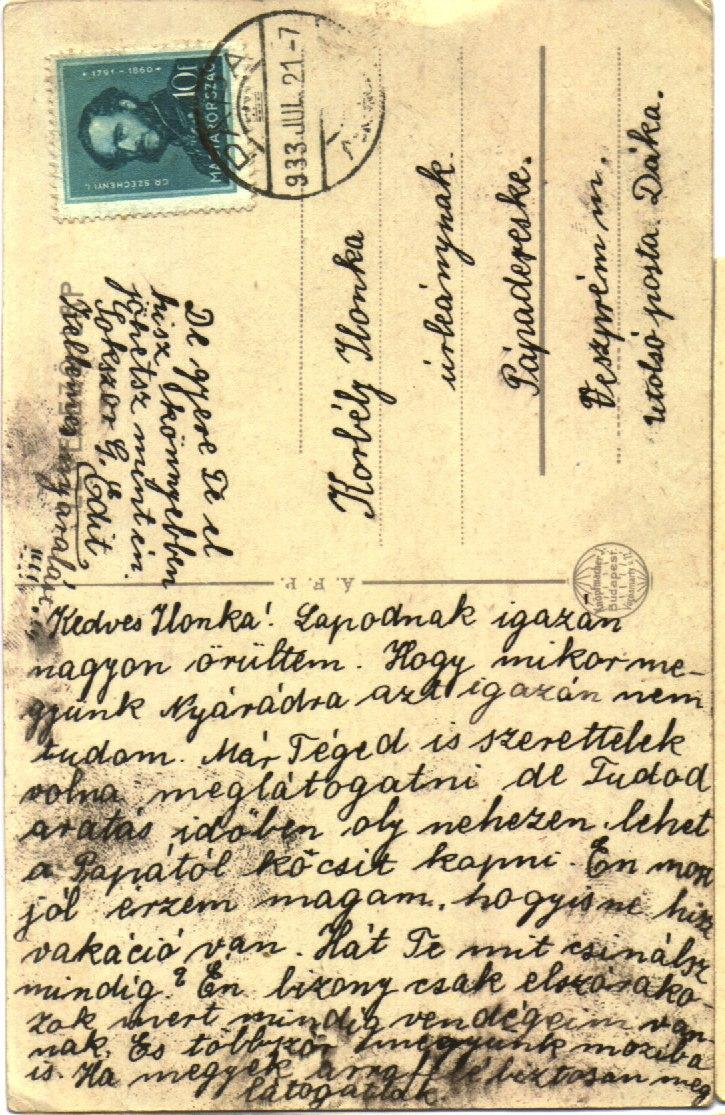 1791-1860
10f
MAGYARORSZÁG
GR. SZÉCHENYI I.
PÁPA
933 JUL. 21.-7
Korbély Ilonka
úrleánynak.
Pápadereske.
Veszprém m.
utolsó posta Dáka.
De gyere Te el
hisz könnyebben
jöhetsz mint én.
Sokszor Cs. Edit
Kellemes nyaralást
A. F. P.
Budapest
Kedves Ilonka! Lapodnak igazán
nagyon örültem. Hogy mikor me-
gyünk Nyárádra azt igazán nem
tudom. Már Téged is szerettelek
volna meglátogatni de Tudod
aratás időben oly nehezen lehet
a Papától kocsit kapni. Én most
jól érzem magam, hogyisne hisz
vakáció van. Hát Te mit csinálsz
mindig? Én bizony csak elszórako-
zok mert mindig vendégeim van-
nak. És többször megyünk moziba
is. Ha megyek arra felé biztosan meg
látogatlak.